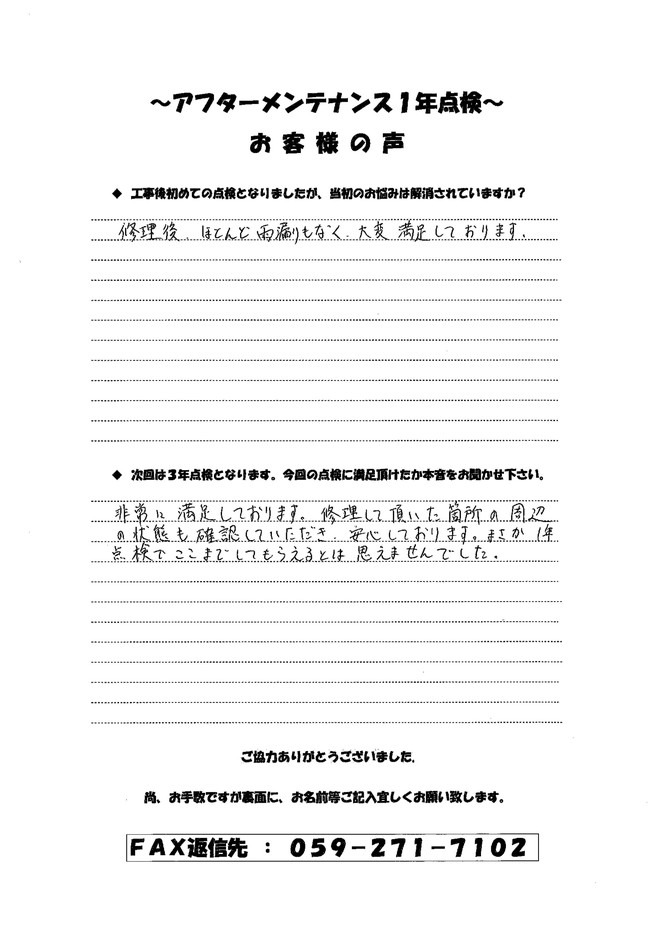 ～アフターメンテナンス１年点検～
お客様の声
◆ 工事後初めての点検となりましたが、当初のお悩みは解消されていますか？
修理後、ほとんど雨漏りもなく、大変満足しております。
◆ 次回は３年点検となります。今回の点検に満足頂けたか本音をお聞かせ下さい。
非常に満足しております。修理して頂いた箇所の周辺
の状態も確認していただき、安心しております。まさか1年
点検でここまでしてもらえるとは思えませんでした。
ご協力ありがとうございました。
尚、お手数ですが裏面に、お名前等ご記入宜しくお願い致します。
ＦＡＸ返信先 ： ０５９－２７１－７１０２